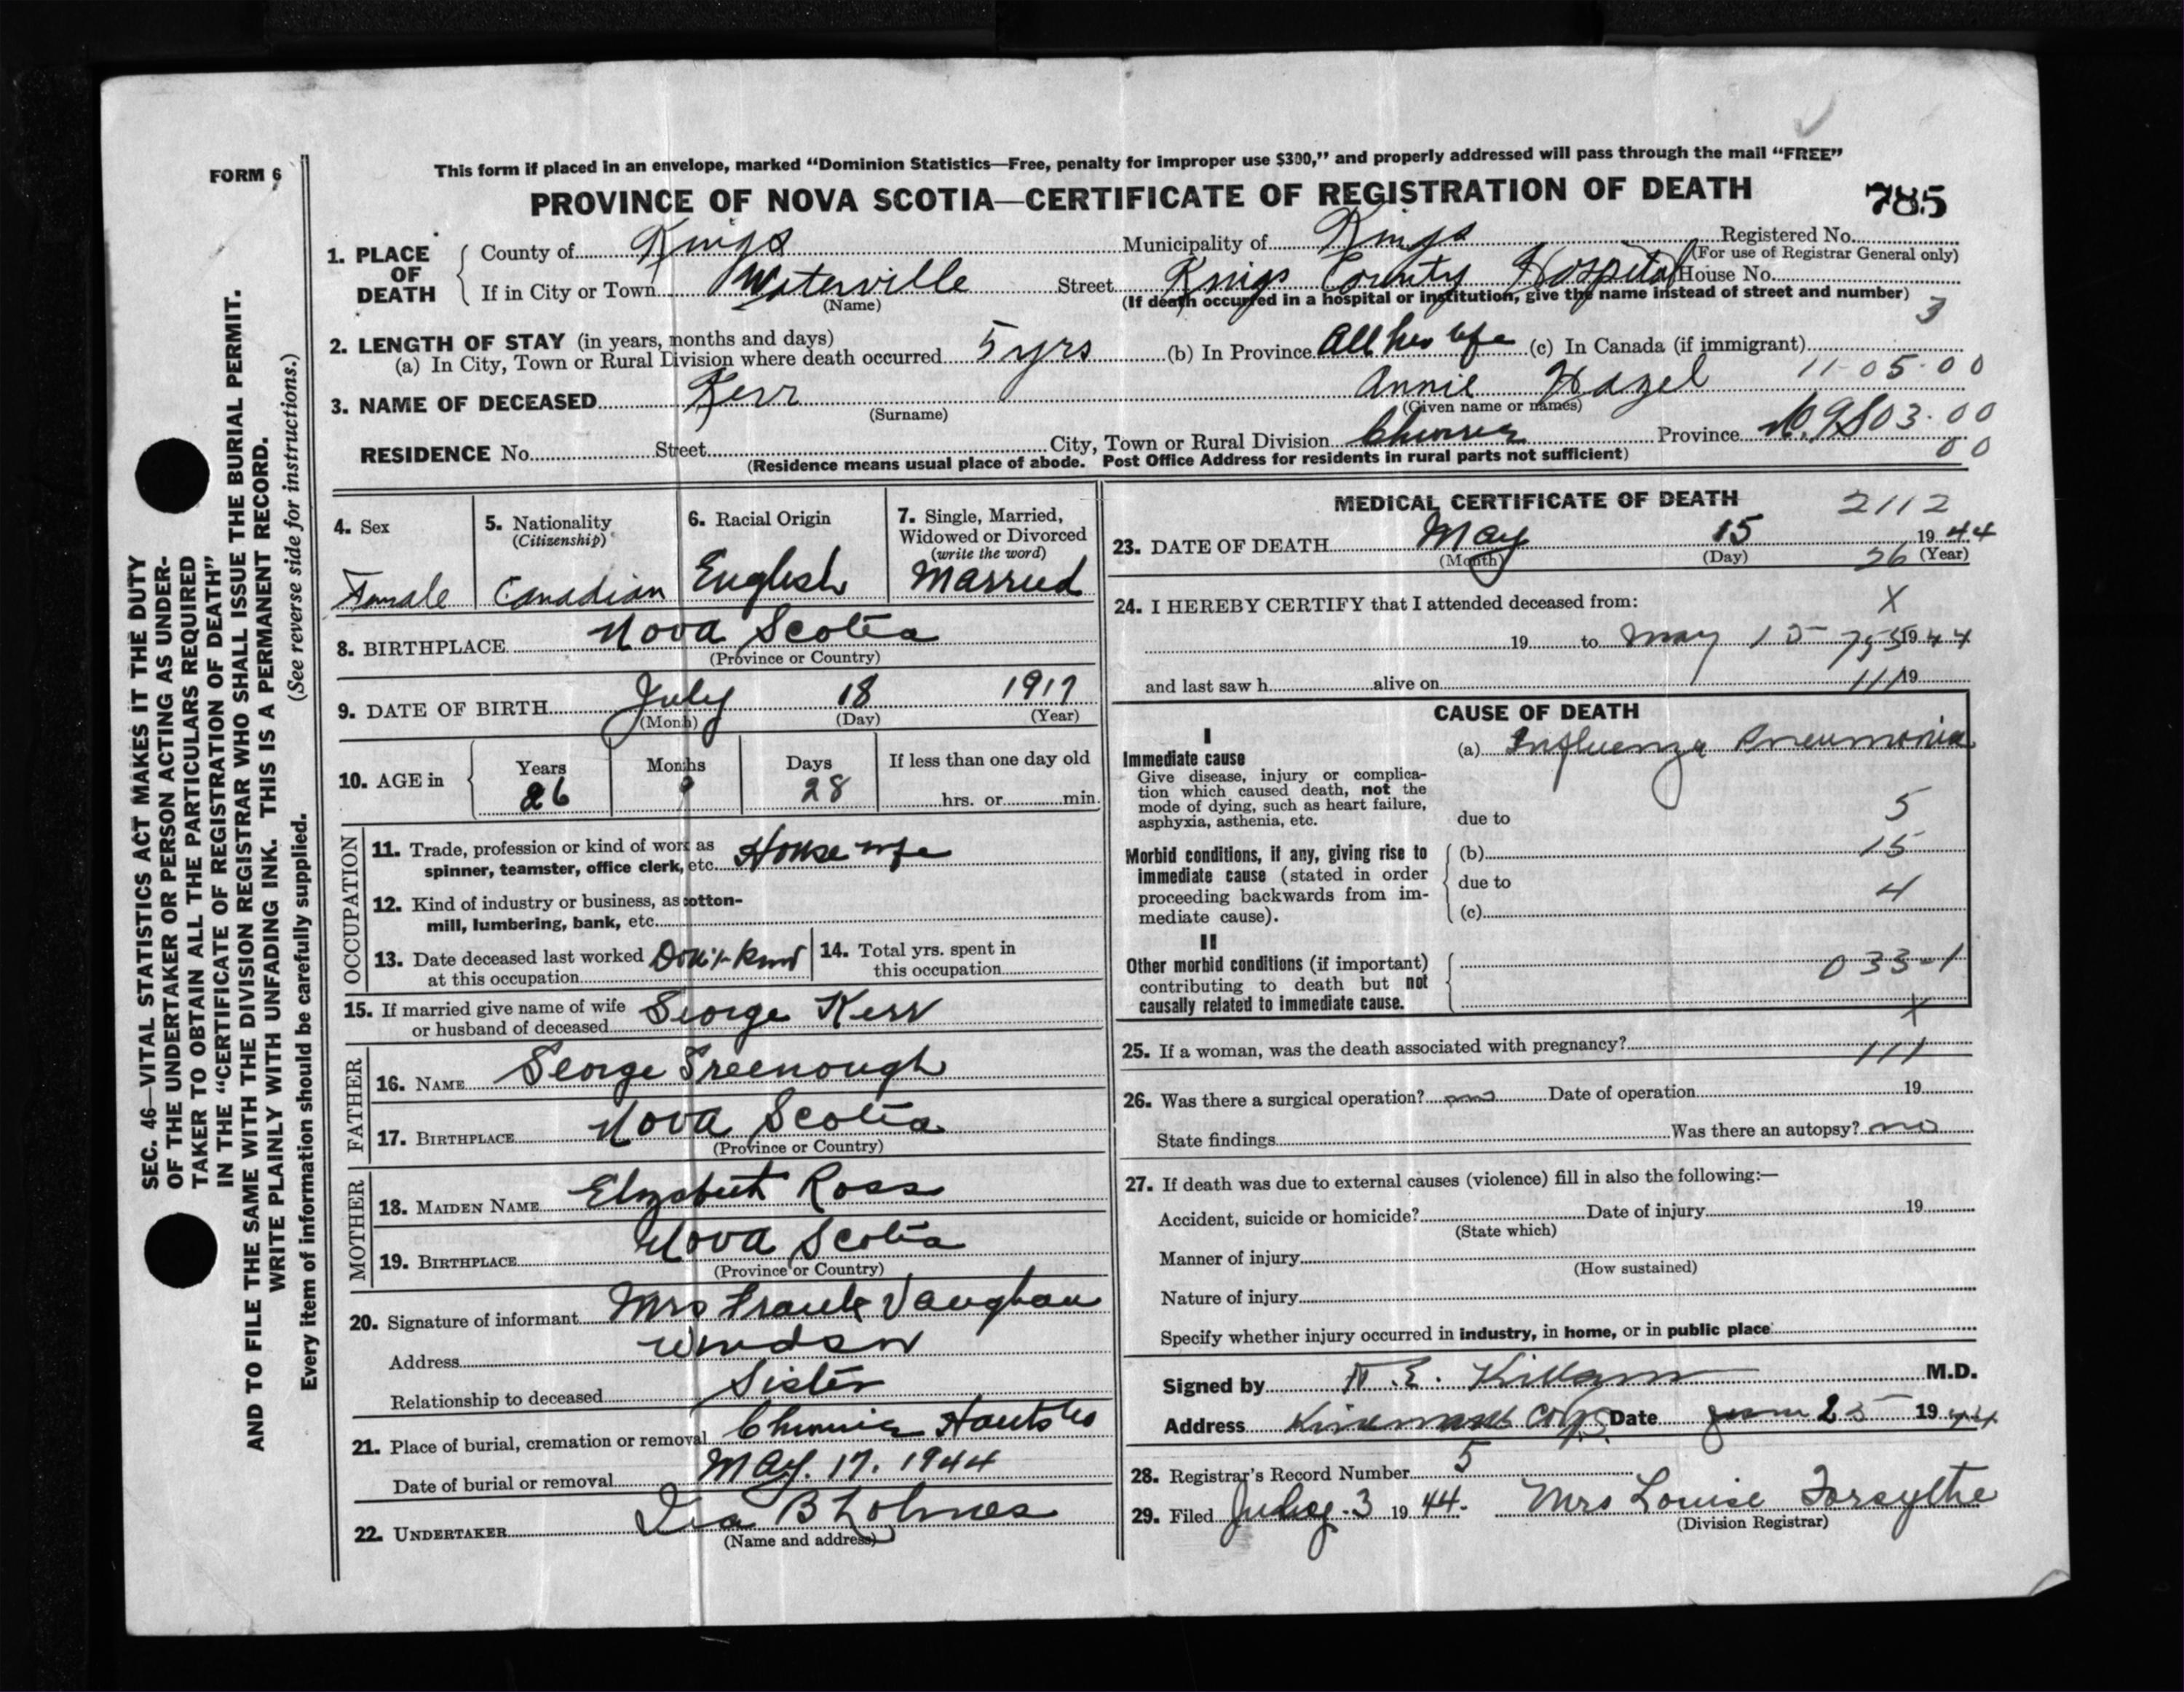 FORM 6
This form if placed in an envelope, marked “Dominion Statistics—Free, penalty for improper use $300,” and properly addressed will pass through the mail “FREE”
PROVINCE OF NOVA SCOTIA—CERTIFICATE OF REGISTRATION OF DEATH
785
SEC. 46—VITAL STATISTICS ACT MAKES IT THE DUTY
OF THE UNDERTAKER OR PERSON ACTING AS UNDER-
TAKER TO OBTAIN ALL THE PARTICULARS REQUIRED
IN THE “CERTIFICATE OF REGISTRATION OF DEATH”
AND TO FILE THE SAME WITH THE DIVISION REGISTRAR WHO SHALL ISSUE THE BURIAL PERMIT.
WRITE PLAINLY WITH UNFADING INK. THIS IS A PERMANENT RECORD.
(See reverse side for instructions.)
Every item of information should be carefully supplied.
1. PLACE OF DEATH
County of Kings Municipality of Kings Registered No.
(For use of Registrar General only)
If in City or Town Waterville Street Kings County Hospital House No.
(Name) (If death occurred in a hospital or institution, give the name instead of street and number)
3
2. LENGTH OF STAY (in years, months and days)
(a) In City, Town or Rural Division where death occurred 5 yrs (b) In Province All her life (c) In Canada (if immigrant)
11-05-00
3. NAME OF DECEASED Kerr Annie Hazel
(Surname) (Given name or names)
RESIDENCE No. Street City, Town or Rural Division Province 803-00
(Residence means usual place of abode. Post Office Address for residents in rural parts not sufficient)
00
4. Sex
Female
5. Nationality
(Citizenship)
Canadian
6. Racial Origin
English
7. Single, Married,
Widowed or Divorced
(write the word)
Married
8. BIRTHPLACE Nova Scotia
(Province or Country)
9. DATE OF BIRTH July 18 1917
(Month) (Day) (Year)
10. AGE in Years 26 Months 9 Days 28 If less than one day old
hrs. or min.
OCCUPATION
11. Trade, profession or kind of work as
spinner, teamster, office clerk, etc. House wife
12. Kind of industry or business, as cotton-
mill, lumbering, bank, etc.
13. Date deceased last worked
at this occupation Don't know
14. Total yrs. spent in
this occupation
15. If married give name of wife
or husband of deceased George Kerr
FATHER
16. NAME George Greenough
17. BIRTHPLACE Nova Scotia
(Province or Country)
MOTHER
18. MAIDEN NAME Elizabeth Ross
19. BIRTHPLACE Nova Scotia
(Province or Country)
20. Signature of informant Mrs Frank Vaughan
Address Windsor
Relationship to deceased Sister
21. Place of burial, cremation or removal Hants Co
Date of burial or removal May. 17. 1944
22. UNDERTAKER Ira B Lohnes
(Name and address)
MEDICAL CERTIFICATE OF DEATH
2112
23. DATE OF DEATH May 15 1944
(Month) (Day) (Year)
26
24. I HEREBY CERTIFY that I attended deceased from:
X
19 to May 15 1944
and last saw h alive on 19
111
CAUSE OF DEATH
I
Immediate cause
Give disease, injury or complica-
tion which caused death, not the
mode of dying, such as heart failure,
asphyxia, asthenia, etc.
(a) Influenza Pneumonia
due to
5
Morbid conditions, if any, giving rise to
immediate cause (stated in order
proceeding backwards from im-
mediate cause).
(b) 15
due to
4
(c)
II
Other morbid conditions (if important)
contributing to death but not
causally related to immediate cause.
033-1
X
25. If a woman, was the death associated with pregnancy?
111
26. Was there a surgical operation? no Date of operation 19
State findings Was there an autopsy? no
27. If death was due to external causes (violence) fill in also the following:—
Accident, suicide or homicide? Date of injury 19
(State which)
Manner of injury
(How sustained)
Nature of injury
Specify whether injury occurred in industry, in home, or in public place
Signed by Killam M.D.
Address Date June 25 1944
28. Registrar's Record Number 5
29. Filed July 3 1944. Mrs Louise Forsythe
(Division Registrar)